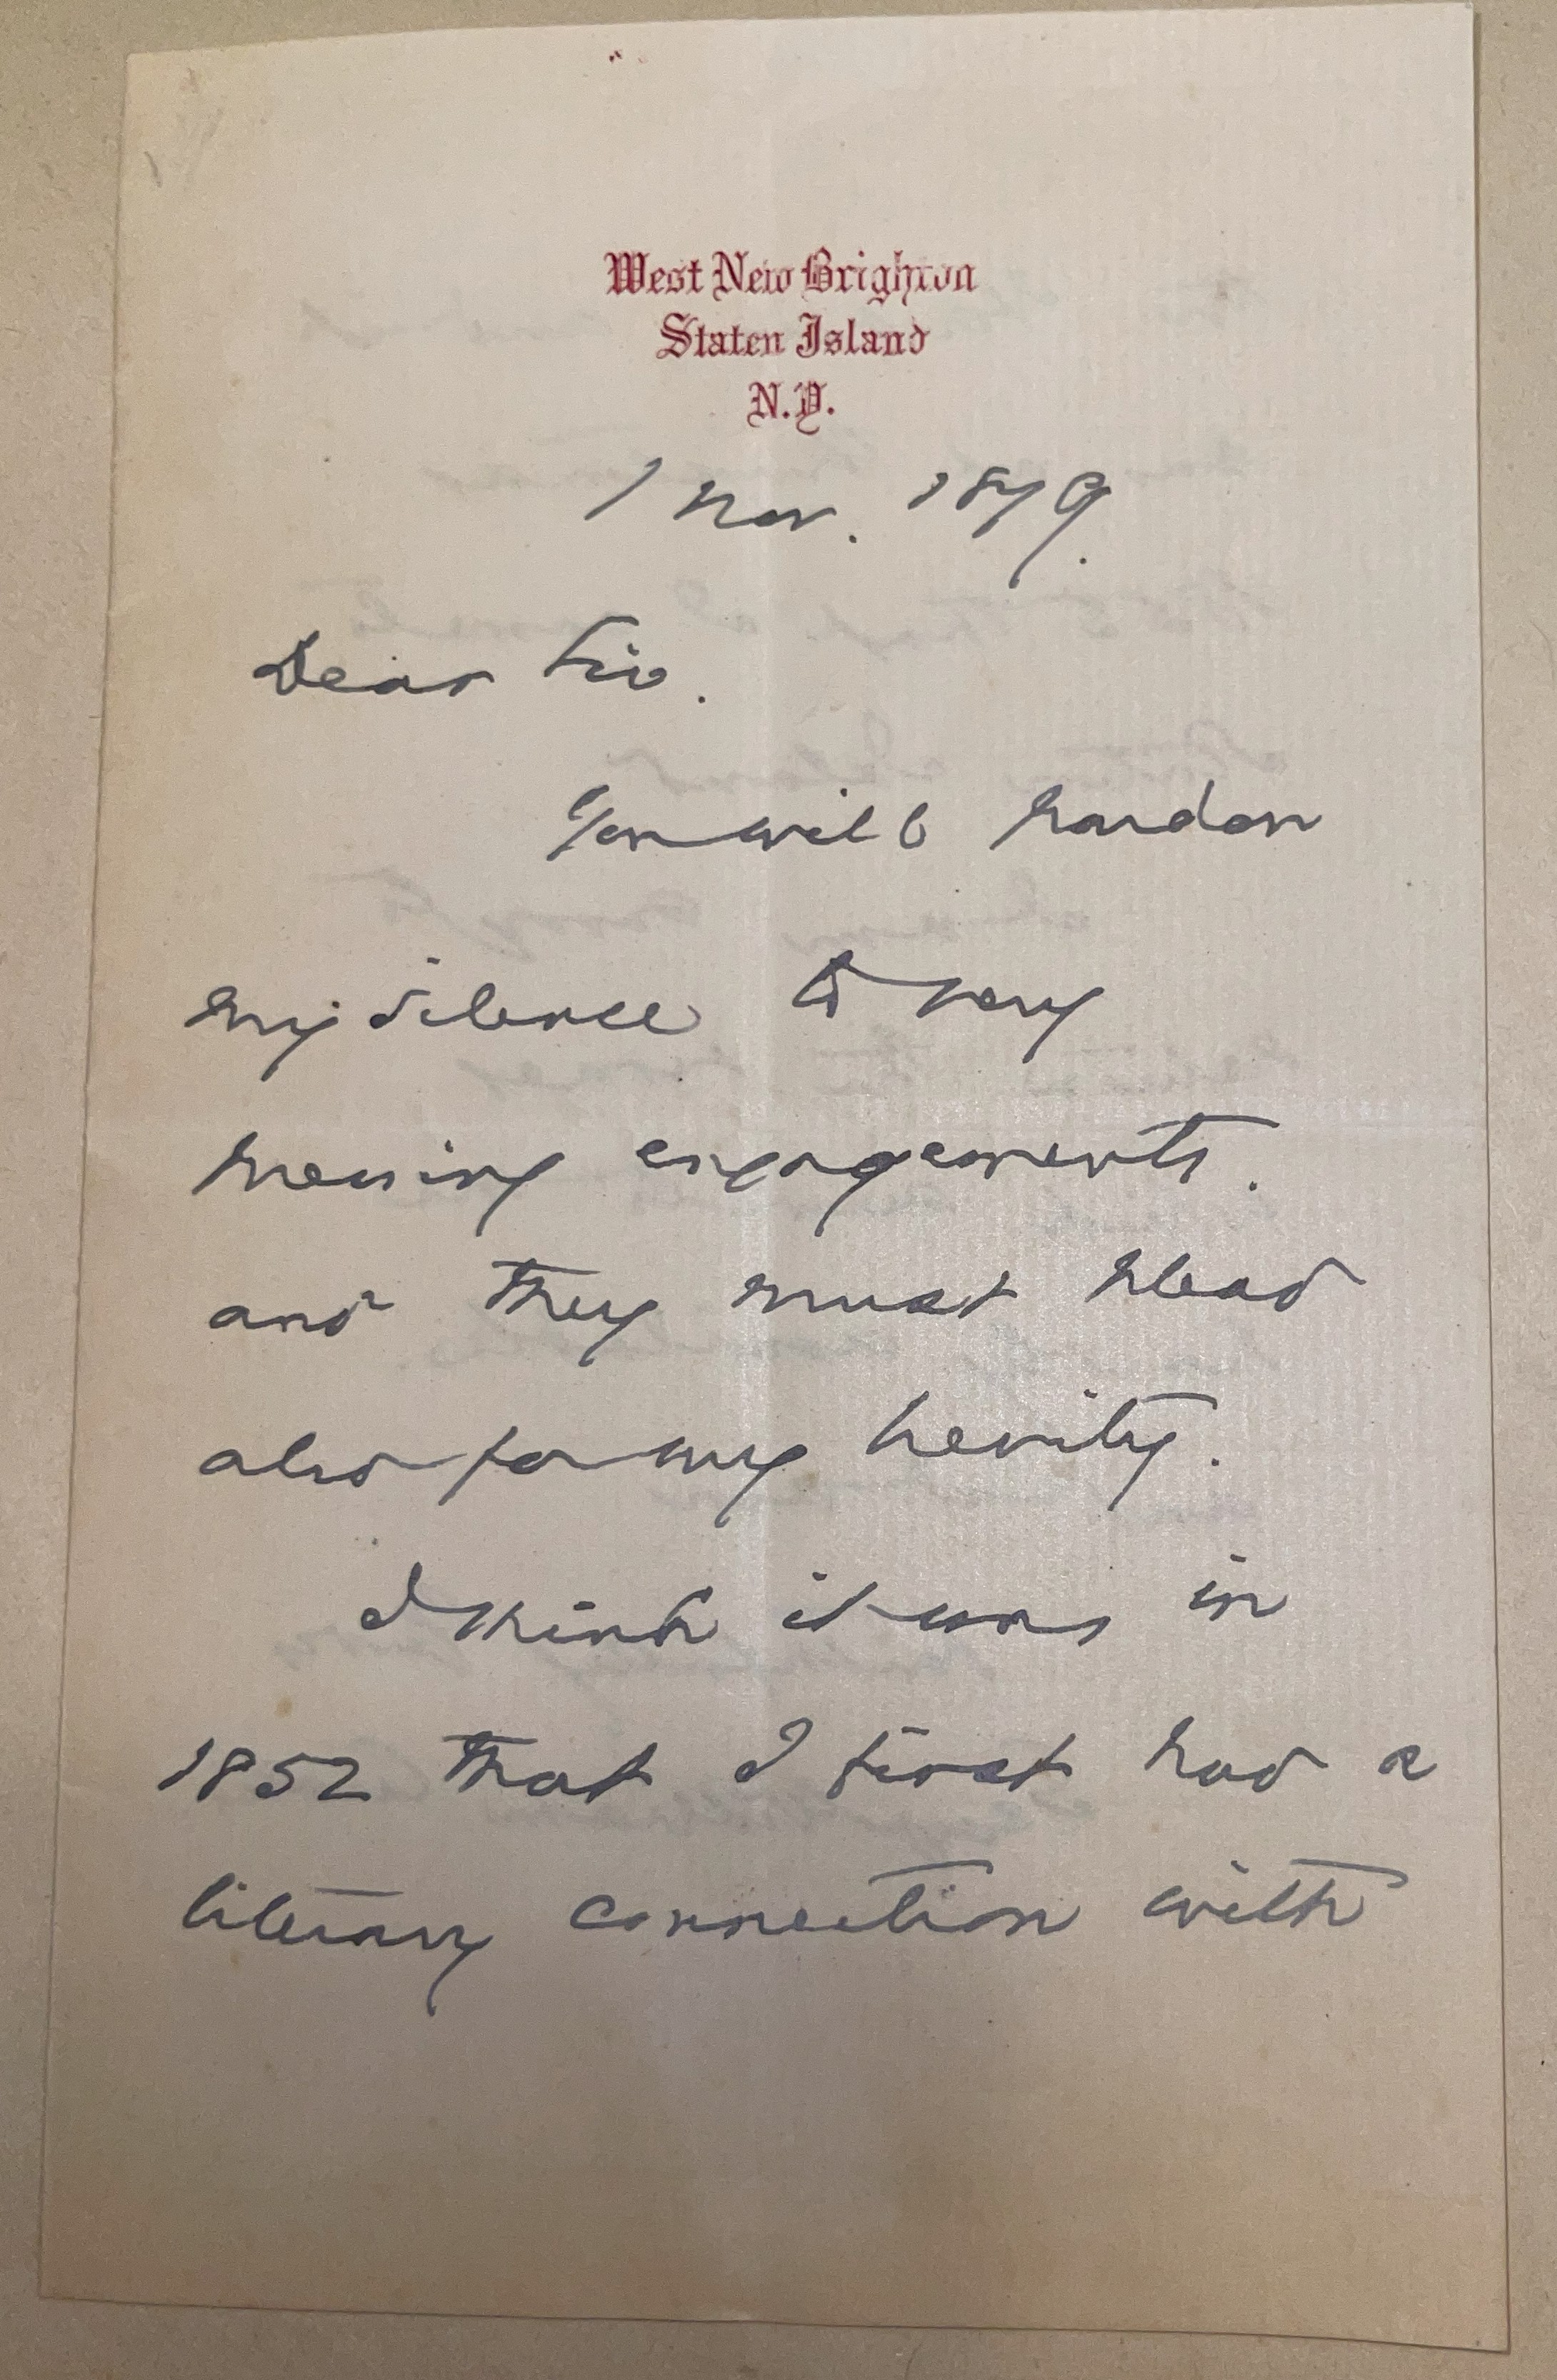 West New Brighton
Staten Island
N.Y.
1 Nov. 1879.
Dear Sir.
You will pardon
my silence to my
pressing engagements.
and they must plead
also for my brevity.
I think it was in
1852 that I first had a
literary connection with